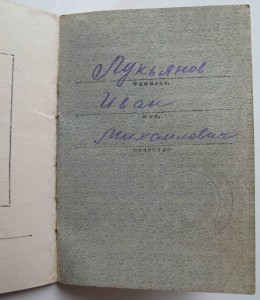 Лукьянов
фамилия,
Иван
имя,
Михаилович
отчество